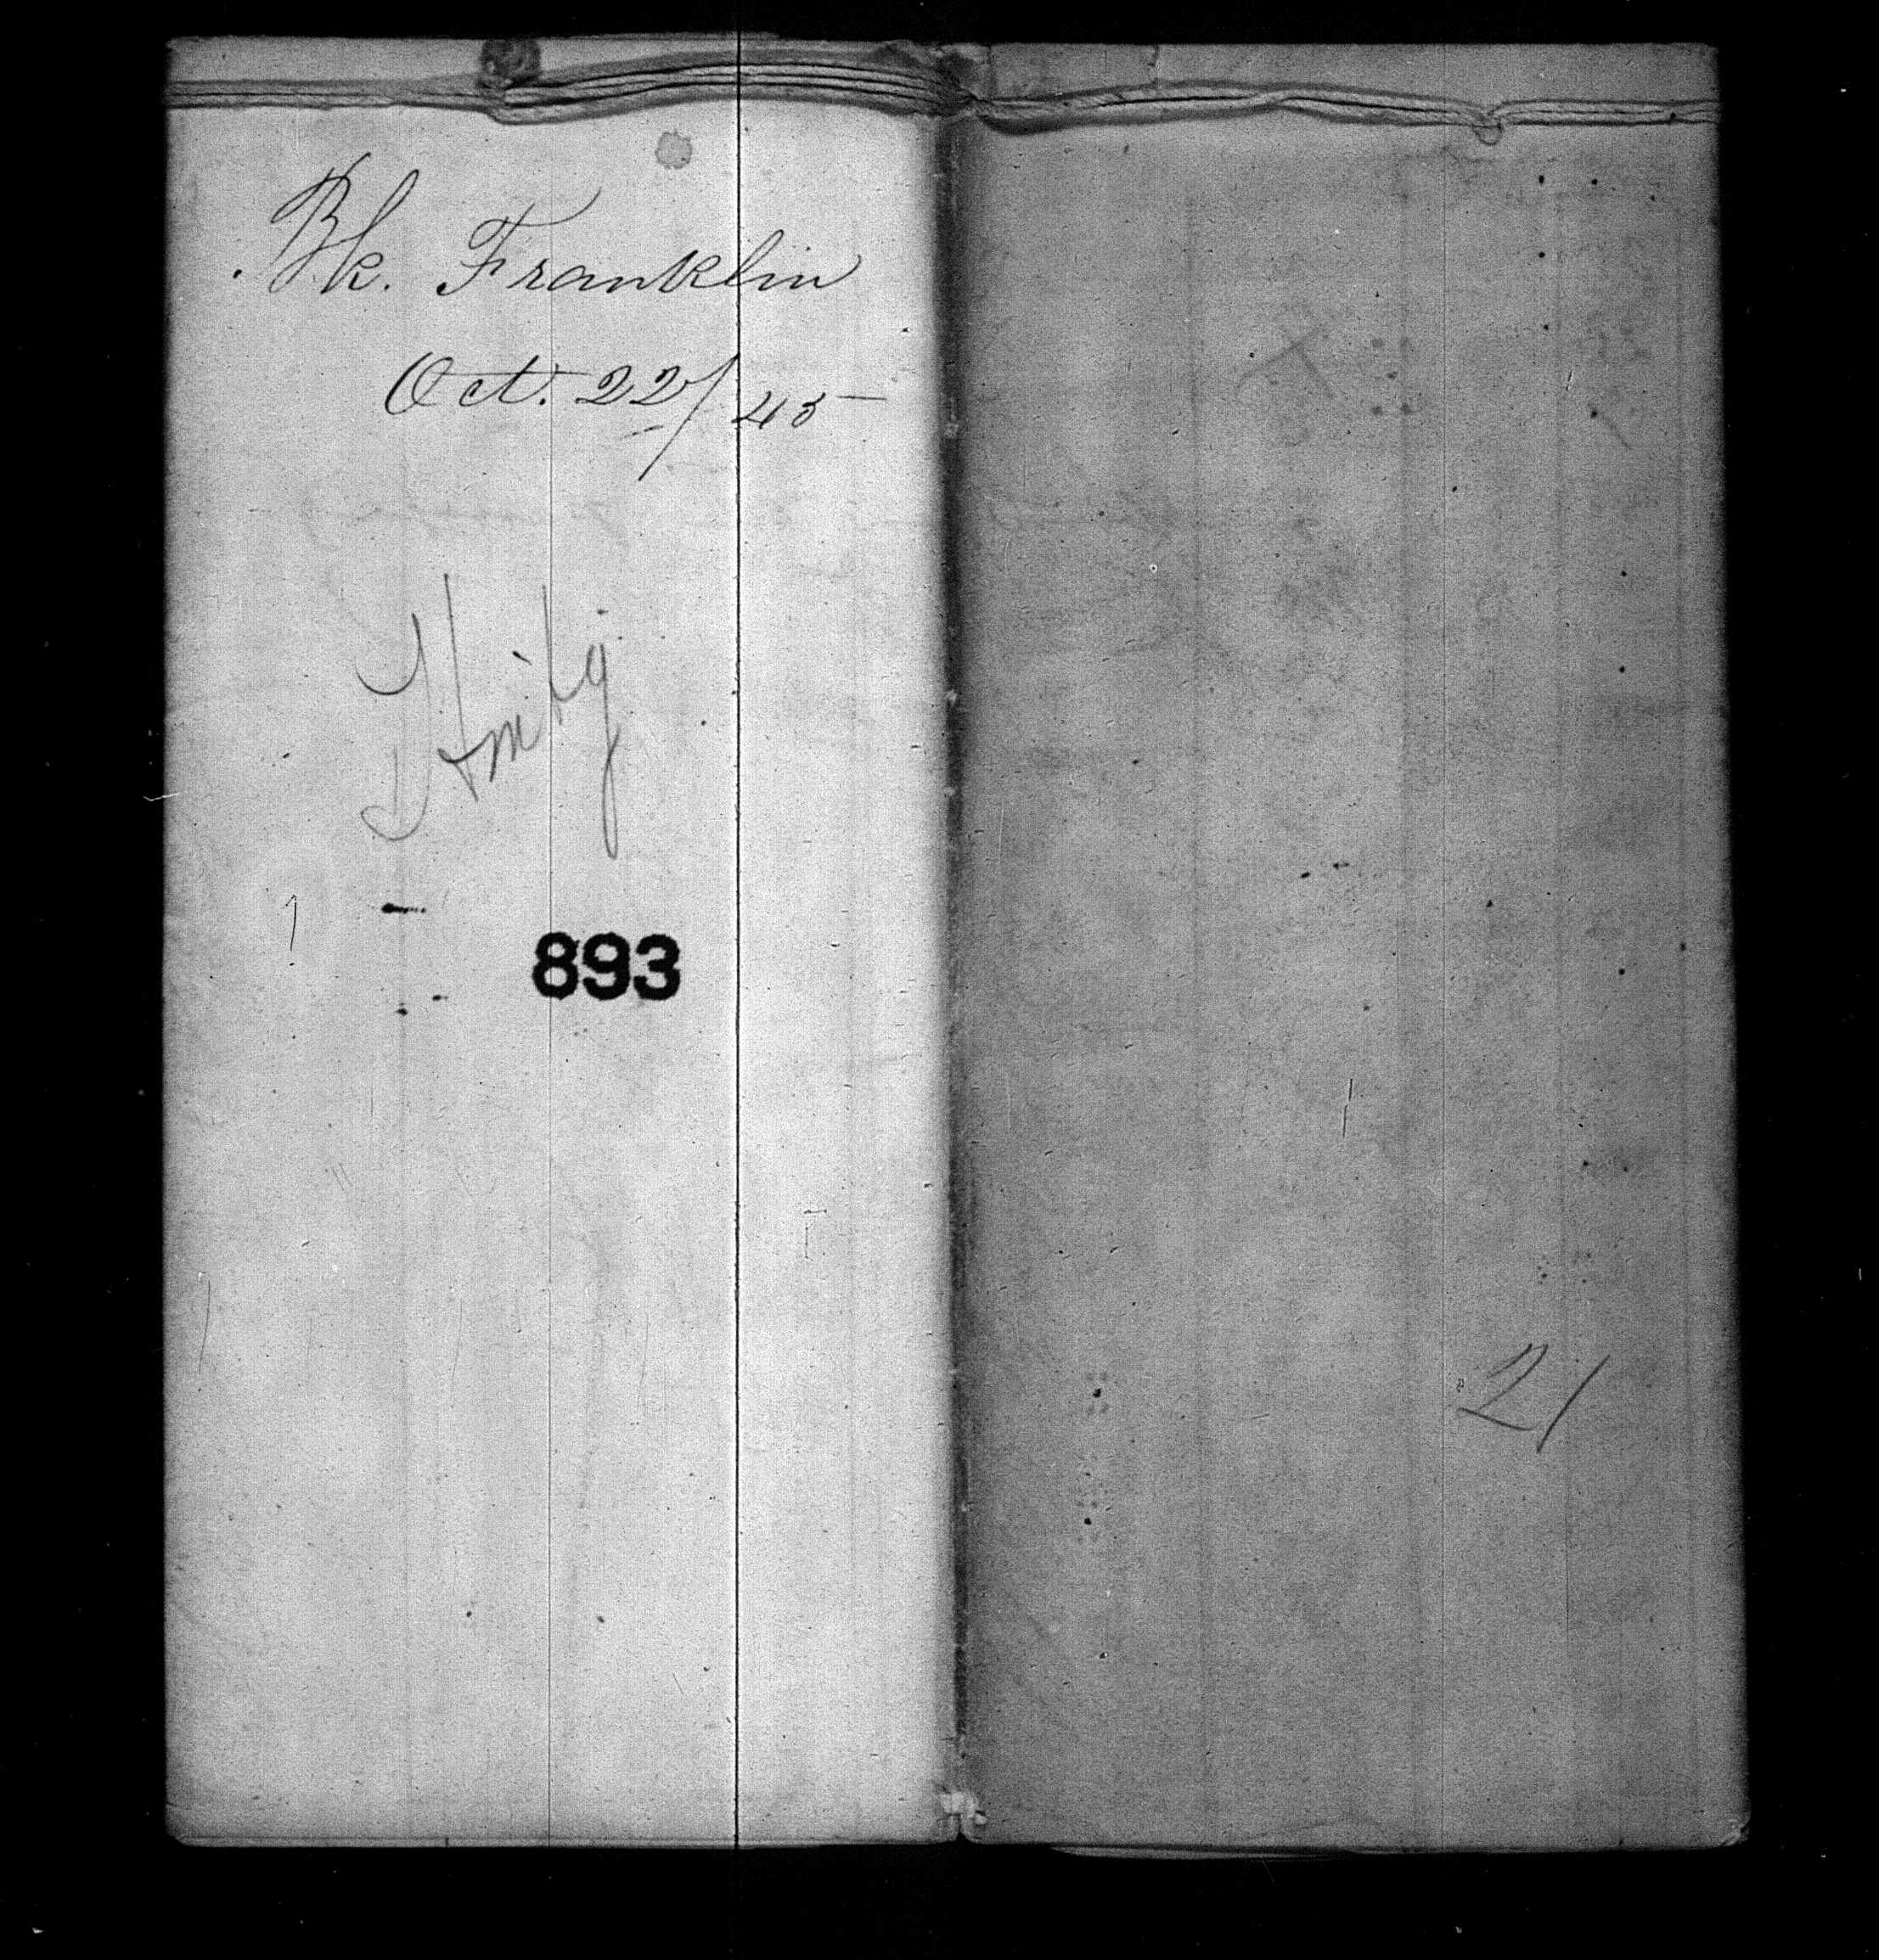 Bk. Franklin
Oct. 22/45
893
21